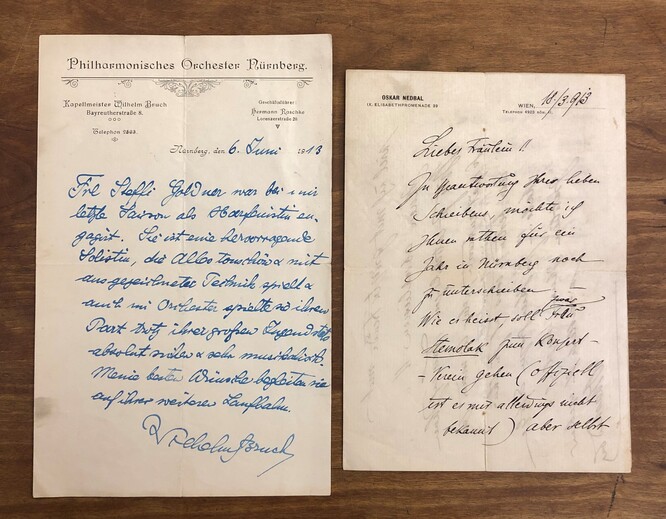 Philharmonisches Orchester Nürnberg.
Kapellmeister Wilhelm Bruch
Bayreutherstraße 8.
Telephon
Geschäftsführer:
Hermann Raschke
Nürnberg, den 6. Juni 1913
Frl Steffi Goldner war bei mir
letzte Saison als Harfenistin en-
gagirt. Sie ist eine hervorragende
Solistin, die Alles tonschön & mit
ausgezeichneter Technik spielt &
auch im Orchester spielte sie ihren
Part trotz ihrer großen Jugend stets
absolut sicher & sehr musikalisch.
Meine besten Wünsche begleiten sie
auf ihrer weiteren Laufbahn.
Wilhelm Bruch
OSKAR NEDBAL
IX. ELISABETHPROMENADE
WIEN, 18/3 913
TELEPHON
Liebes Fräulein!
In Beantwortung Ihres lieben
Schreibens, möchte ich
Ihnen rathen für ein
Jahr in Nürnberg noch
zu unterschreiben –
Wie es heist, soll zwar Frau
zum Konzert-
-Verein gehen (offiziell
ist es mir allerdings nicht
bekannt) aber selbst